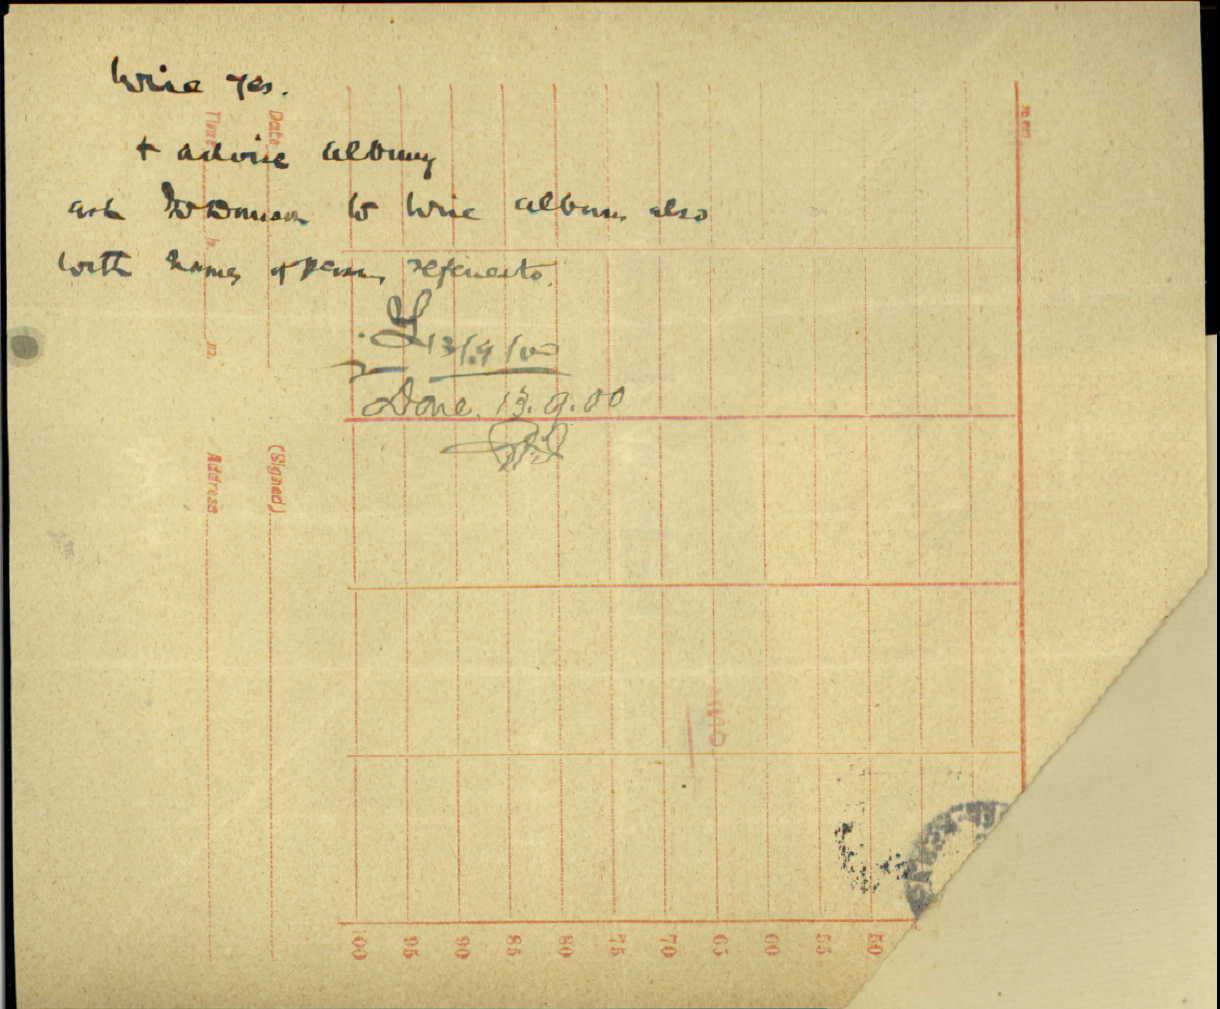 Wire yes.
+ advise Albany
ask to wire Albany also
with names of persons referred to.
13/9/00
Done. 13.9.00
Date
Time
h.
m.
(Signed)
Address
100 95 90 85 80 75 70 65 60 55 50